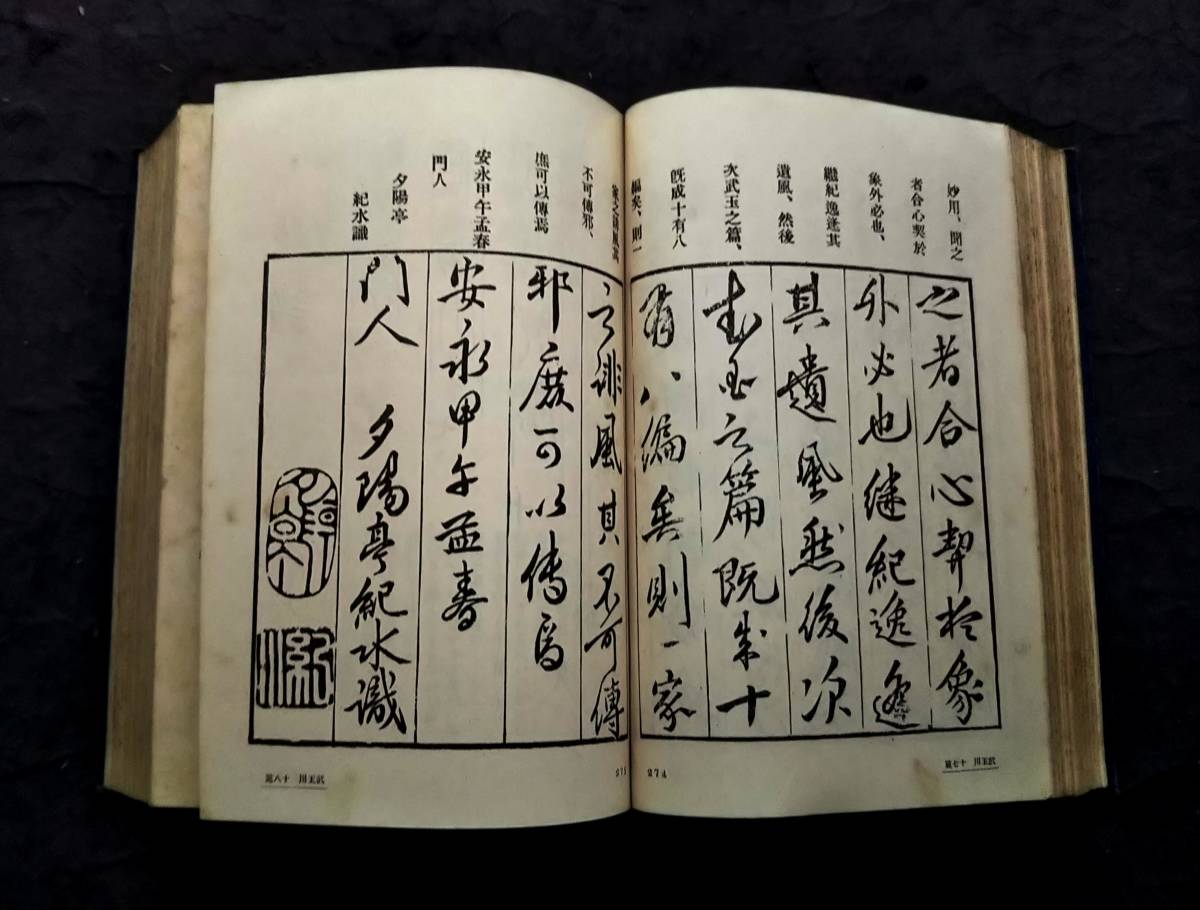 妙用、聞之
者合心契於
象外必也、
繼紀逸迯其
遺風、然後
次武玉之篇、
既成十有八
編矣、則一
不可傳邪、
庶可以傳焉
安永甲午孟春
門人
夕陽亭
紀水識
之者合心契於象
外必也継紀逸迯
其遺風然後次
武玉之篇既成十
有八編矣則一家
之俳風其不可傳
邪庶可以傳焉
安永甲午孟春
門人 夕陽亭紀水識
武玉川 十七篇
274
275
武玉川 十八篇